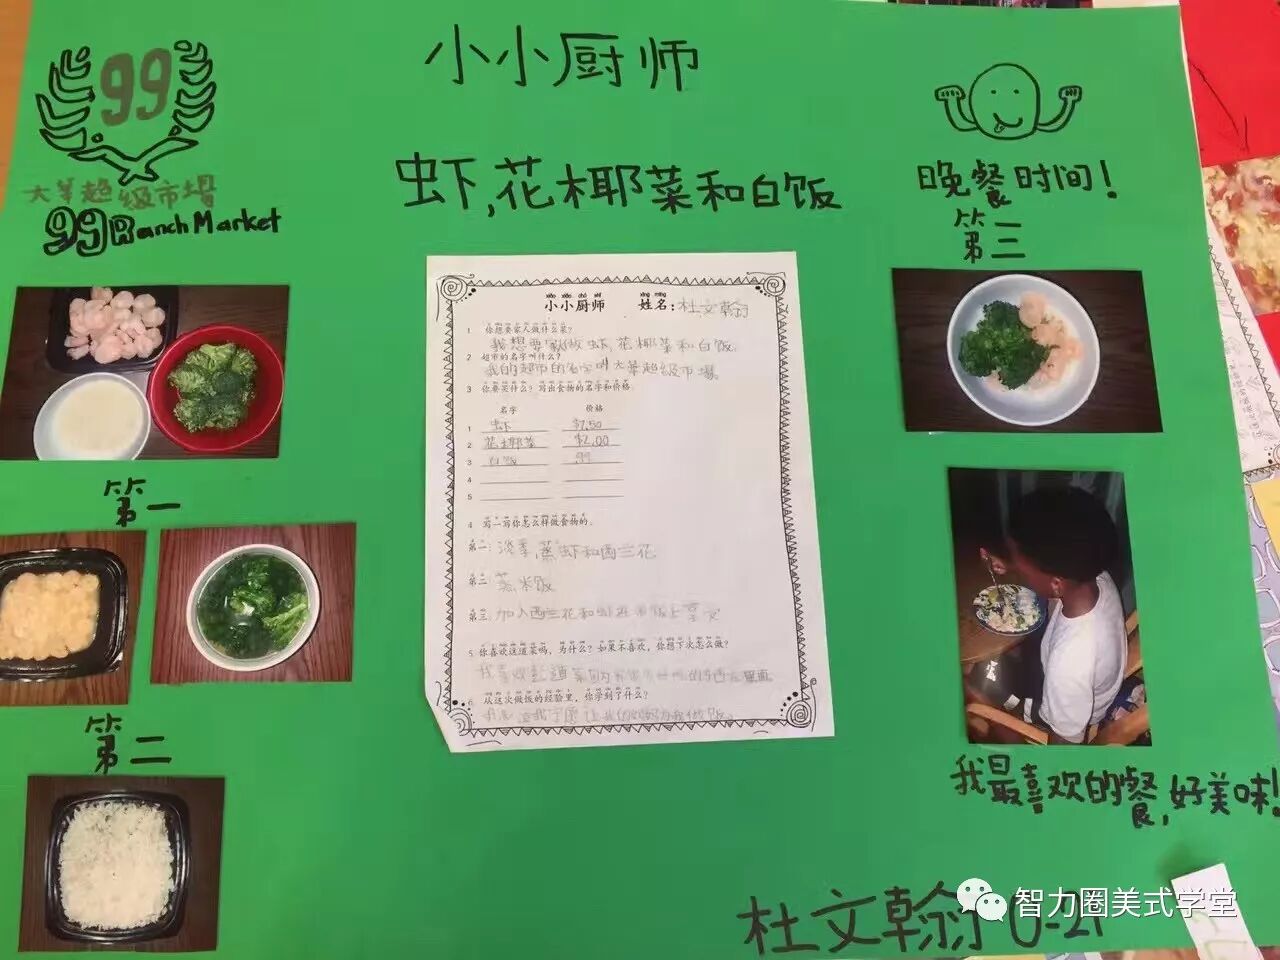 小小厨师
99
大華超级市場
99 Ranch Market
虾,花椰菜和白饭
晚餐时间!
第三
第一
第二
xiǎo xiǎo chú shī
小小厨师
xìng míng
姓名:杜文翰
1. 你想要家人做什么菜?
我想要做虾,花椰菜和白饭.
2. 超市的名字叫什么?
我的超市的名字叫大華超级市場.
3. 你要买什么?写出食物的名字和价格.
名字 价格
1 虾 $7.50
2 花椰菜 $2.00
3 白饭 .99
4
5
4. 写一写你怎么样做食物的.
第一: 蒸虾和西兰花
第二: 蒸米饭
第三: 加入西兰花和虾
5. 你喜欢这道菜吗,为什么?如果不喜欢,你想下次怎么做?
我喜欢
6. 从这次做饭的经验里,你学到了什么?
我最喜欢的餐,好美味!
杜文翰
智力圈美式学堂